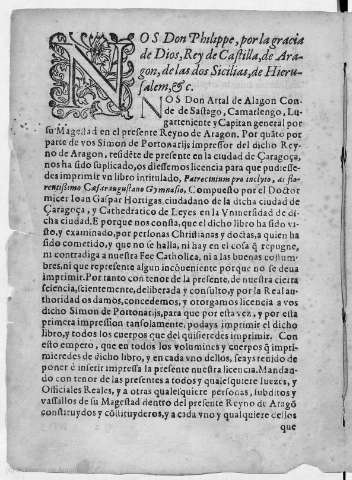 NOS Don Philippe, por la gracia
de Dios, Rey de Castilla, de Ara-
gon, de las dos Sicilias, de Hieru-
salem, &c.
NOS Don Artal de Alagon Con-
de de Sastago, Camarlengo, Lu-
garteniente y Capitan general por
su Magestad en el presente Reyno de Aragon. Por quāto por
parte de vos Simon de Portonarijs impressor del dicho Rey
no de Aragon, residēte de presente en la ciudad de Çaragoça,
nos ha sido suplicado, os diessemos licencia para que pudiesse-
des imprimir vn libro intitulado, Patrocinium pro inclyto, ac flo-
rentissimo Cæsaraugustano Gymnasio. Compuesto por el Doctor
micer Ioan Gaspar Hortigas, ciudadano de la dicha ciudad de
Çaragoça, y Cathedratico de Leyes en la Vniuersidad de di-
cha ciudad. E porque nos consta, que el dicho libro ha sido vi-
sto, y examinado, por personas Christianas y doctas, a quien ha
sido cometido, y que no se halla, ni hay en el cosa q̄ repugne,
ni contradiga a nuestra Fee Catholica, ni a las buenas costum-
bres, ni que represente algun incōueniente porque no se deua
imprimir. Por tanto con tenor de la presente, de nuestra cierta
sciencia, scientemente, deliberada y consulto, y por la Real au-
thoridad os damos, concedemos, y otorgamos licencia a vos
dicho Simon de Portonarijs, para que por esta vez, y por esta
primera impression tansolamente, podays imprimir el dicho
libro, y todos los cuerpos que del quisieredes imprimir. Con
esto empero, que en todos los volumines y cuerpos q̄ impri-
mieredes de dicho libro, y en cada vno dellos, seays tenido de
poner ē inserir impressa la presente nuestra licencia. Mandan-
do con tenor de las presentes a todos y qualesquiere Iuezes, y
Officiales Reales, y a otras qualesquiere personas, subditos y
vassallos de su Magestad dentro del presente Reyno de Aragō
constituydos y cōstituyderos, y a cada vno y qualquiere dellos
que